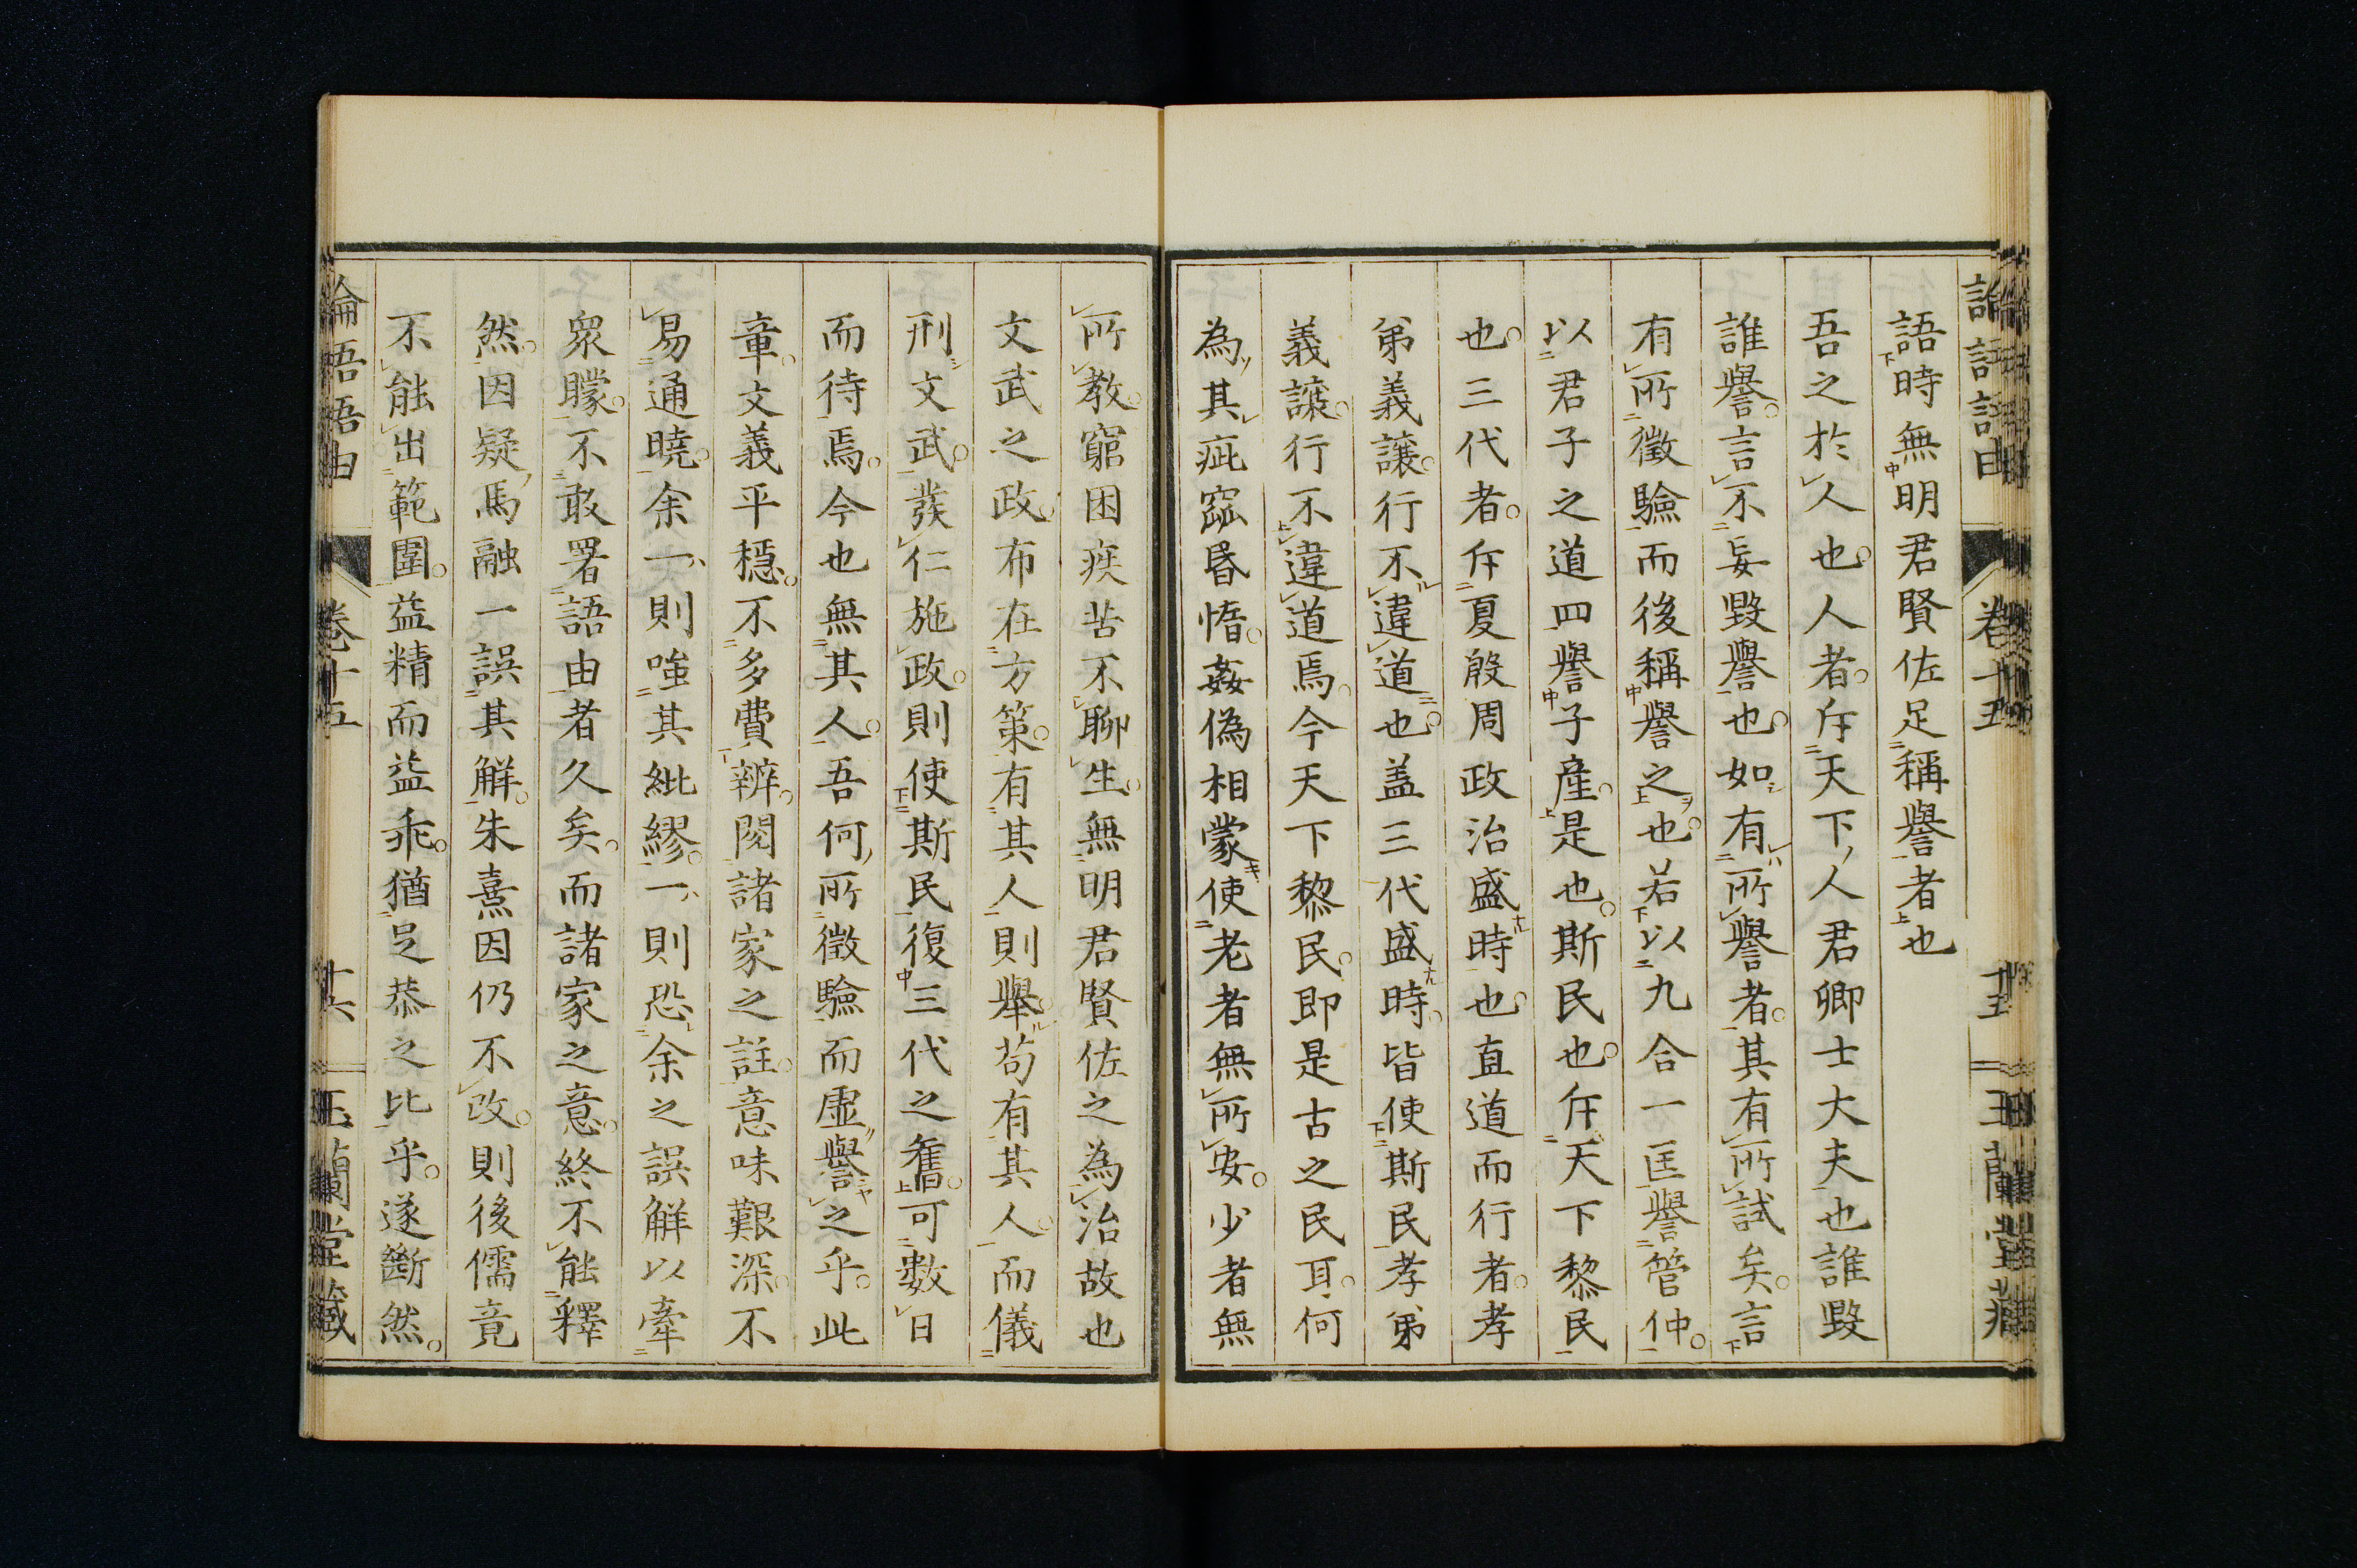 語時無明君賢佐足稱譽者也
吾之於人也人者斥天下人君卿士大夫也誰毀
誰譽言不妄毀譽也如有所譽者其有所試矣言
有所徵驗而後稱譽之也若以九合一匡譽管仲
以君子之道四譽子產是也斯民也斥天下黎民
也三代者斥夏殷周政治盛時也直道而行者孝
弟義讓行不違道也盖三代盛時皆使斯民孝弟
義讓行不違道焉今天下黎民即是古之民耳何
為其疵窳昏惰姦偽相蒙使老者無所安少者無
所教窮困疾苦不聊生無明君賢佐之為治故也
文武之政布在方策有其人則舉苟有其人而儀
刑文武發仁施政則使斯民復三代之舊可數日
而待焉今也無其人吾何所徵驗而虛譽之乎此
章文義平穩不多費辨閱諸家之註意味艱深不
易通曉余一則嗤其紕繆一則恐余之誤解以牽
眾矇不敢署語由者久矣而諸家之意終不能釋
然因疑馬融一誤其解朱熹因仍不改則後儒竟
不能出範圍益精而益乖猶足恭之比乎遂斷然
論語語由 卷十五 十六 玉蘭堂藏